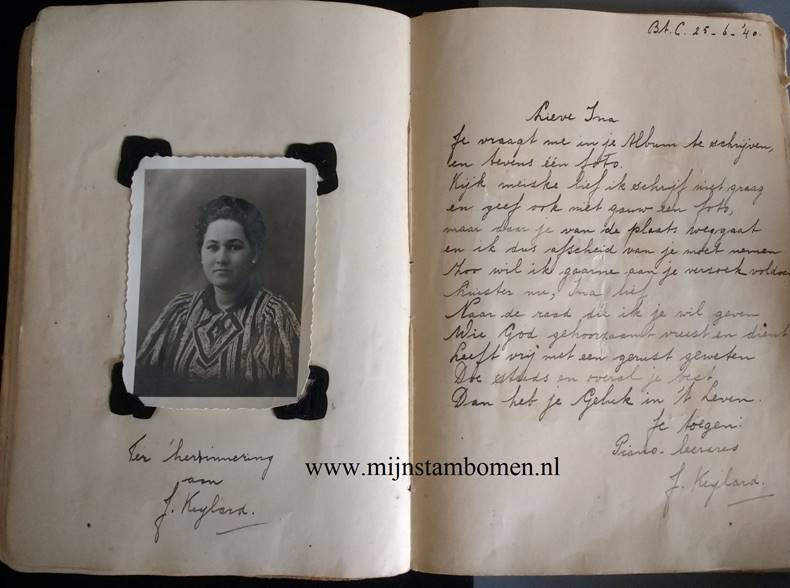 Ter herinnering
aan
J. Keylard.
www.mijnstambomen.nl
Bt. C. 25-6-'40.
Lieve Ina
Je vraagt me in je Album te schrijven,
en tevens één foto.
Kijk meiske lief ik schrijf niet graag
en geef ook niet gauw een foto,
maar daar je van de plaats weggaat
en ik dus afscheid van je moet nemen
Zoo wil ik gaarne aan je verzoek voldoen
Luister nu, Ina lief,
Naar de raad die ik je wil geven
Wie God gehoorzaamt vreest en dient
Leeft vrij met een gerust geweten
Doe steeds en overal je best
Dan heb je Geluk in 't Leven.
Je toegen:
Piano-leerares
J. Keylard.